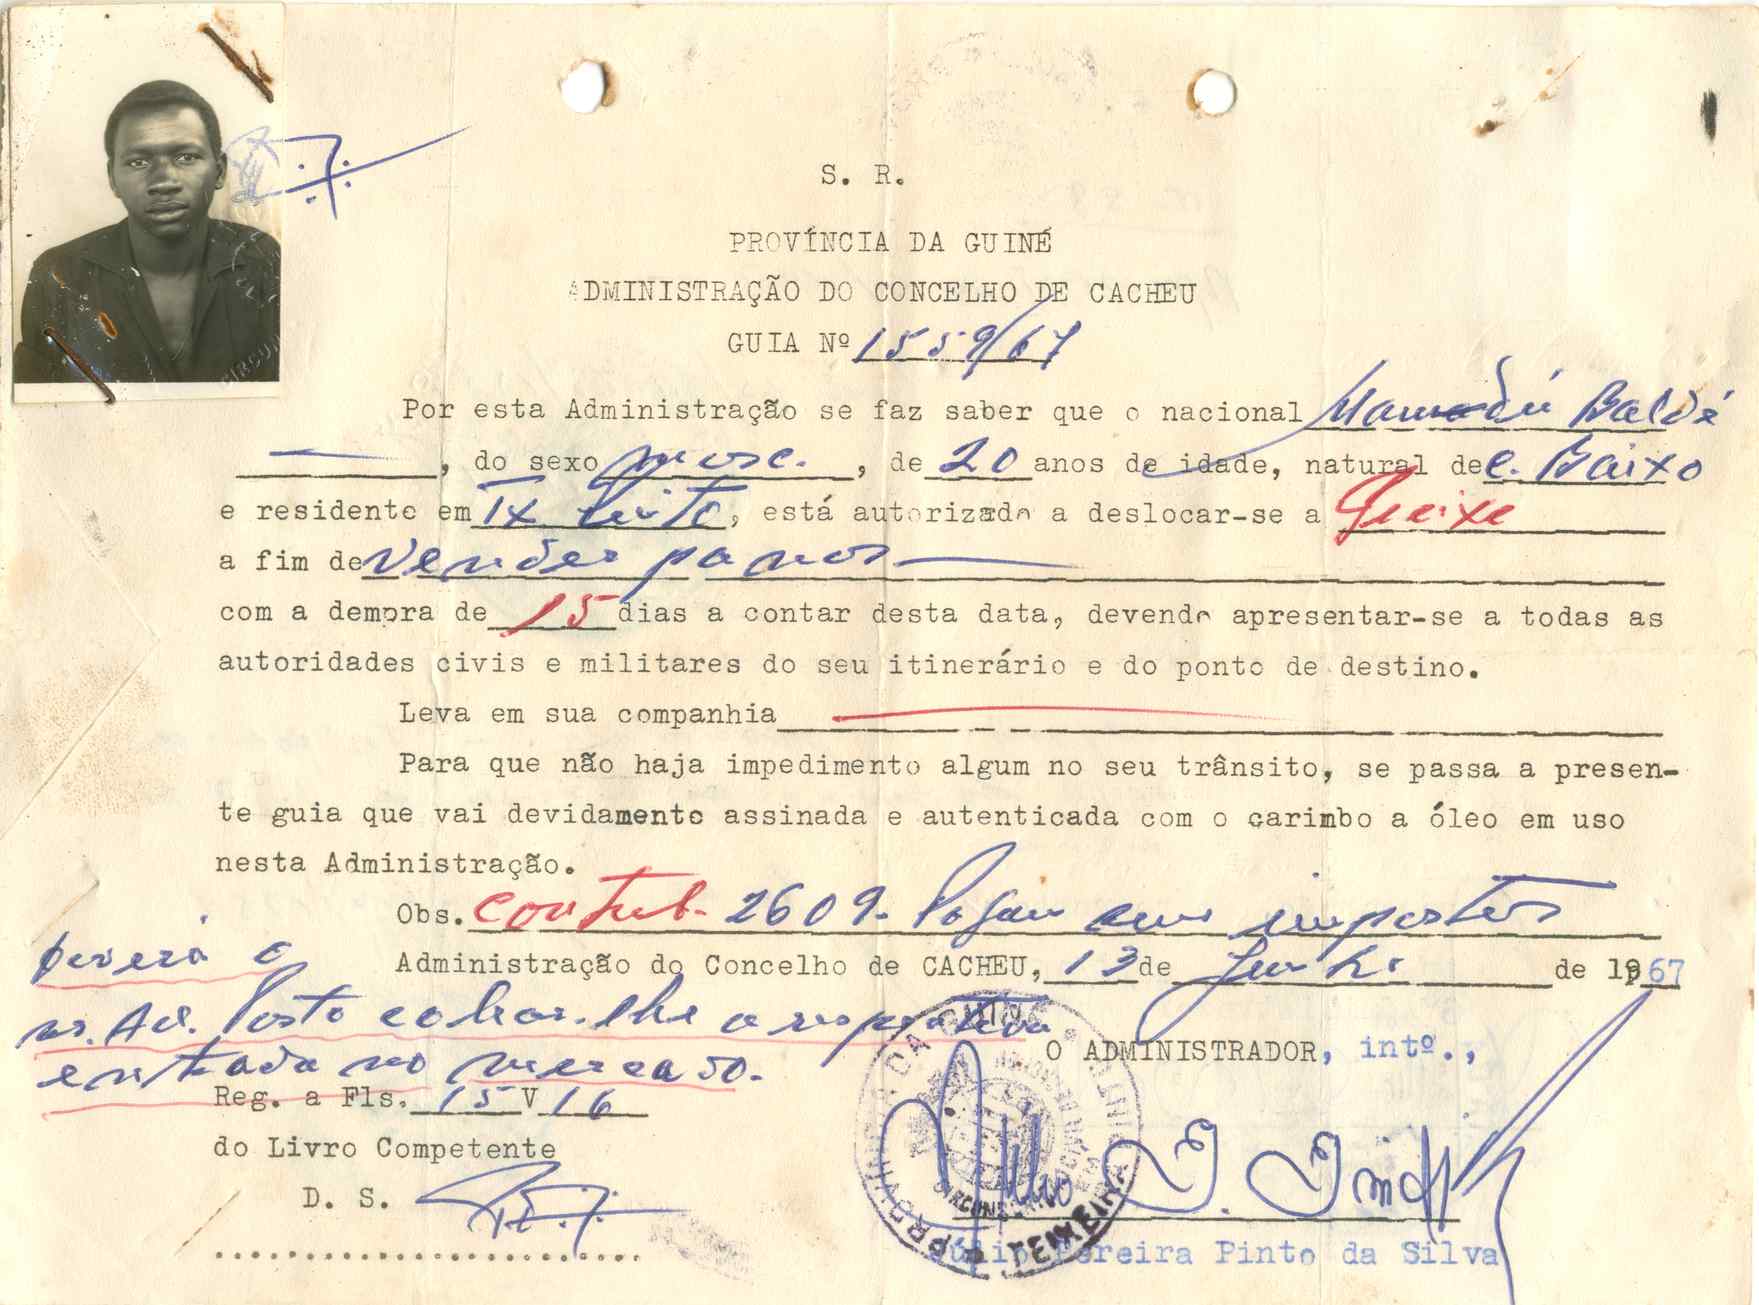 S. R.
PROVÍNCIA DA GUINÉ
ADMINISTRAÇÃO DO CONCELHO DE CACHEU
GUIA Nº 1559/67
Por esta Administração se faz saber que o nacional Mamadú Baldé
, do sexo masc. , de 20 anos de idade, natural de C. Baixo
e residente em , está autorizado a deslocar-se a
a fim de vender panos
com a demora de 15 dias a contar desta data, devendo apresentar-se a todas as
autoridades civis e militares do seu itinerário e do ponto de destino.
Leva em sua companhia
Para que não haja impedimento algum no seu trânsito, se passa a presen-
te guia que vai devidamente assinada e autenticada com o carimbo a óleo em uso
nesta Administração.
Obs. Contrib. 2609. impostos
Deverá o
Administração do Concelho de CACHEU, 13 de Junho de 1967
sr. Ad. Posto cobrar-lhe a respectiva
entrada no mercado.
O ADMINISTRADOR, intº.,
Reg. a Fls. 15 V 16
do Livro Competente
D. S.
PROVÍNCIA DA GUINÉ
Júlio Pereira Pinto da Silva